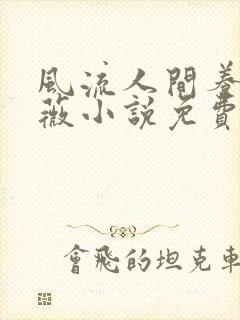 風流人間蓁
薇小說免費
會飛的坦克車